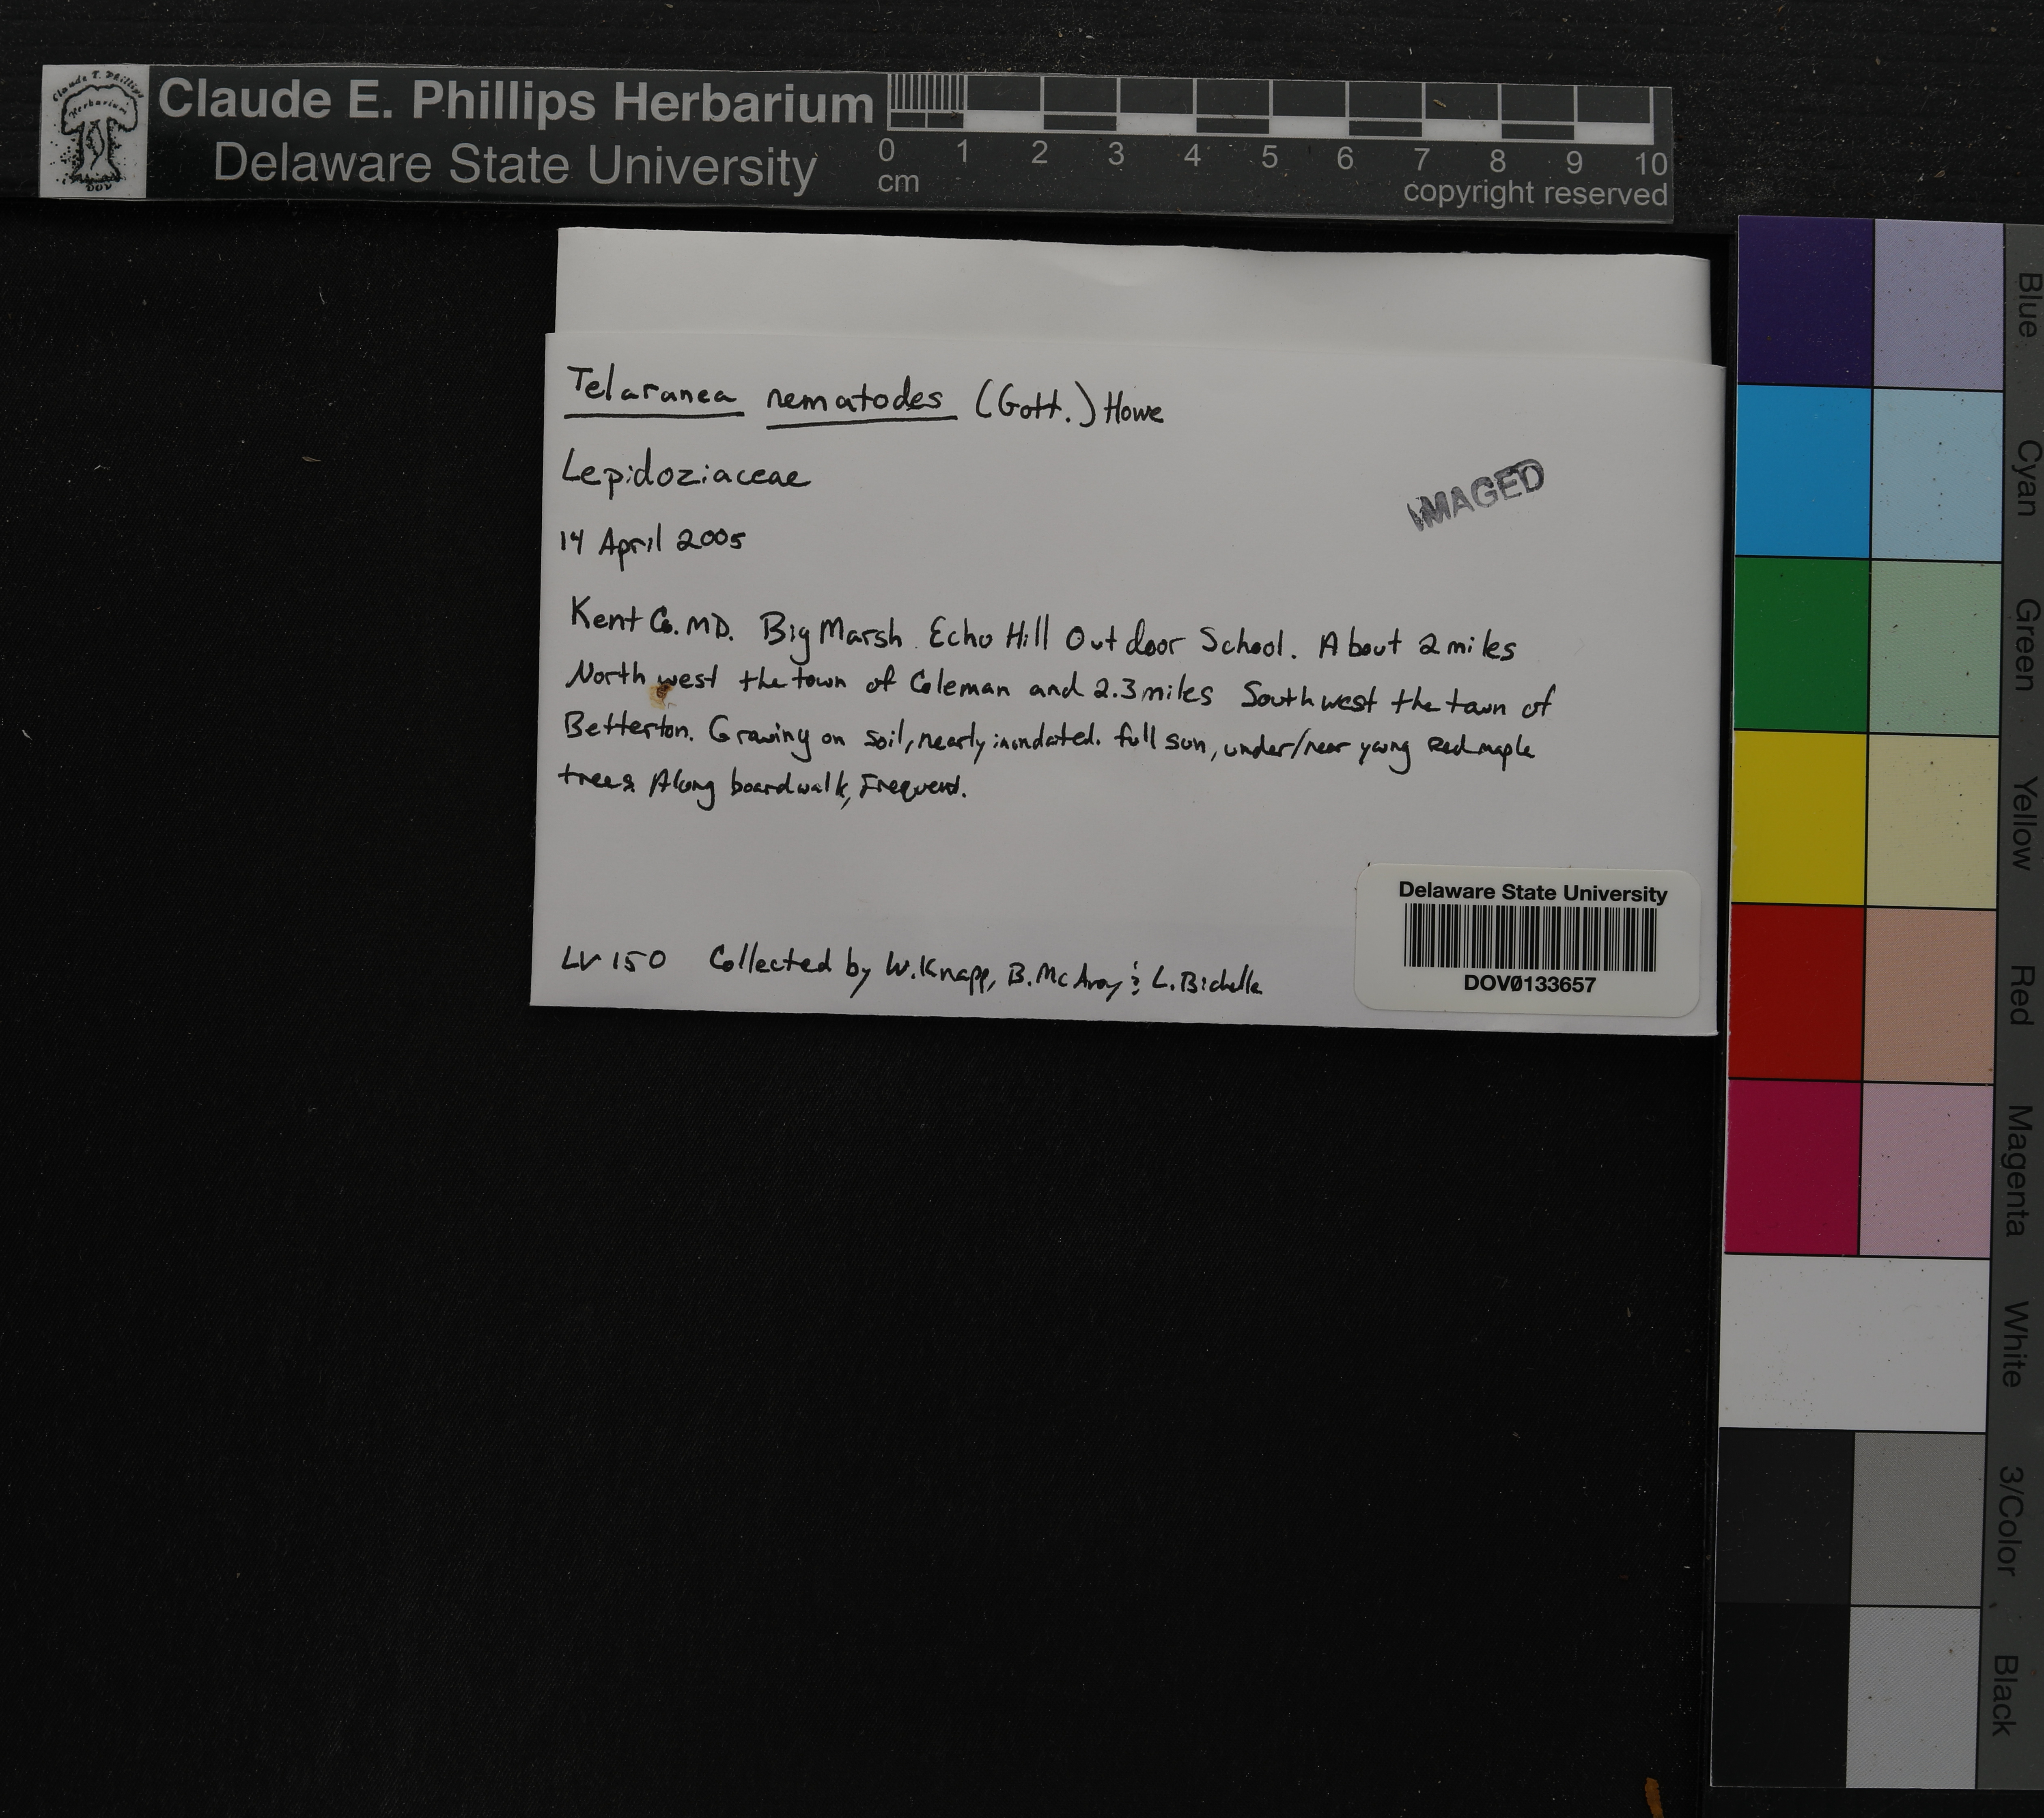 Claude E. Phillips Herbarium
Delaware State University
0 1 2 3 4 5 6 7 8 9 10
cm
copyright reserved
Claude E. Phillips
Herbarium
DOV
Telaranea nematodes (Gott.) Howe
Lepidoziaceae
IMAGED
14 April 2005
Kent Co. MD. Big Marsh Echo Hill Outdoor School. About 2 miles
North west the town of Coleman and 2.3 miles Southwest the town of
Betterton. Growing on soil, nearly inundated. full sun, under/near young Red maple
trees Along boardwalk, Frequent.
Delaware State University
DOVØ133657
LV 150 Collected by W. Knapp, B. McAvoy & L.
Blue
Cyan
Green
Yellow
Red
Magenta
White
3/Color
Black